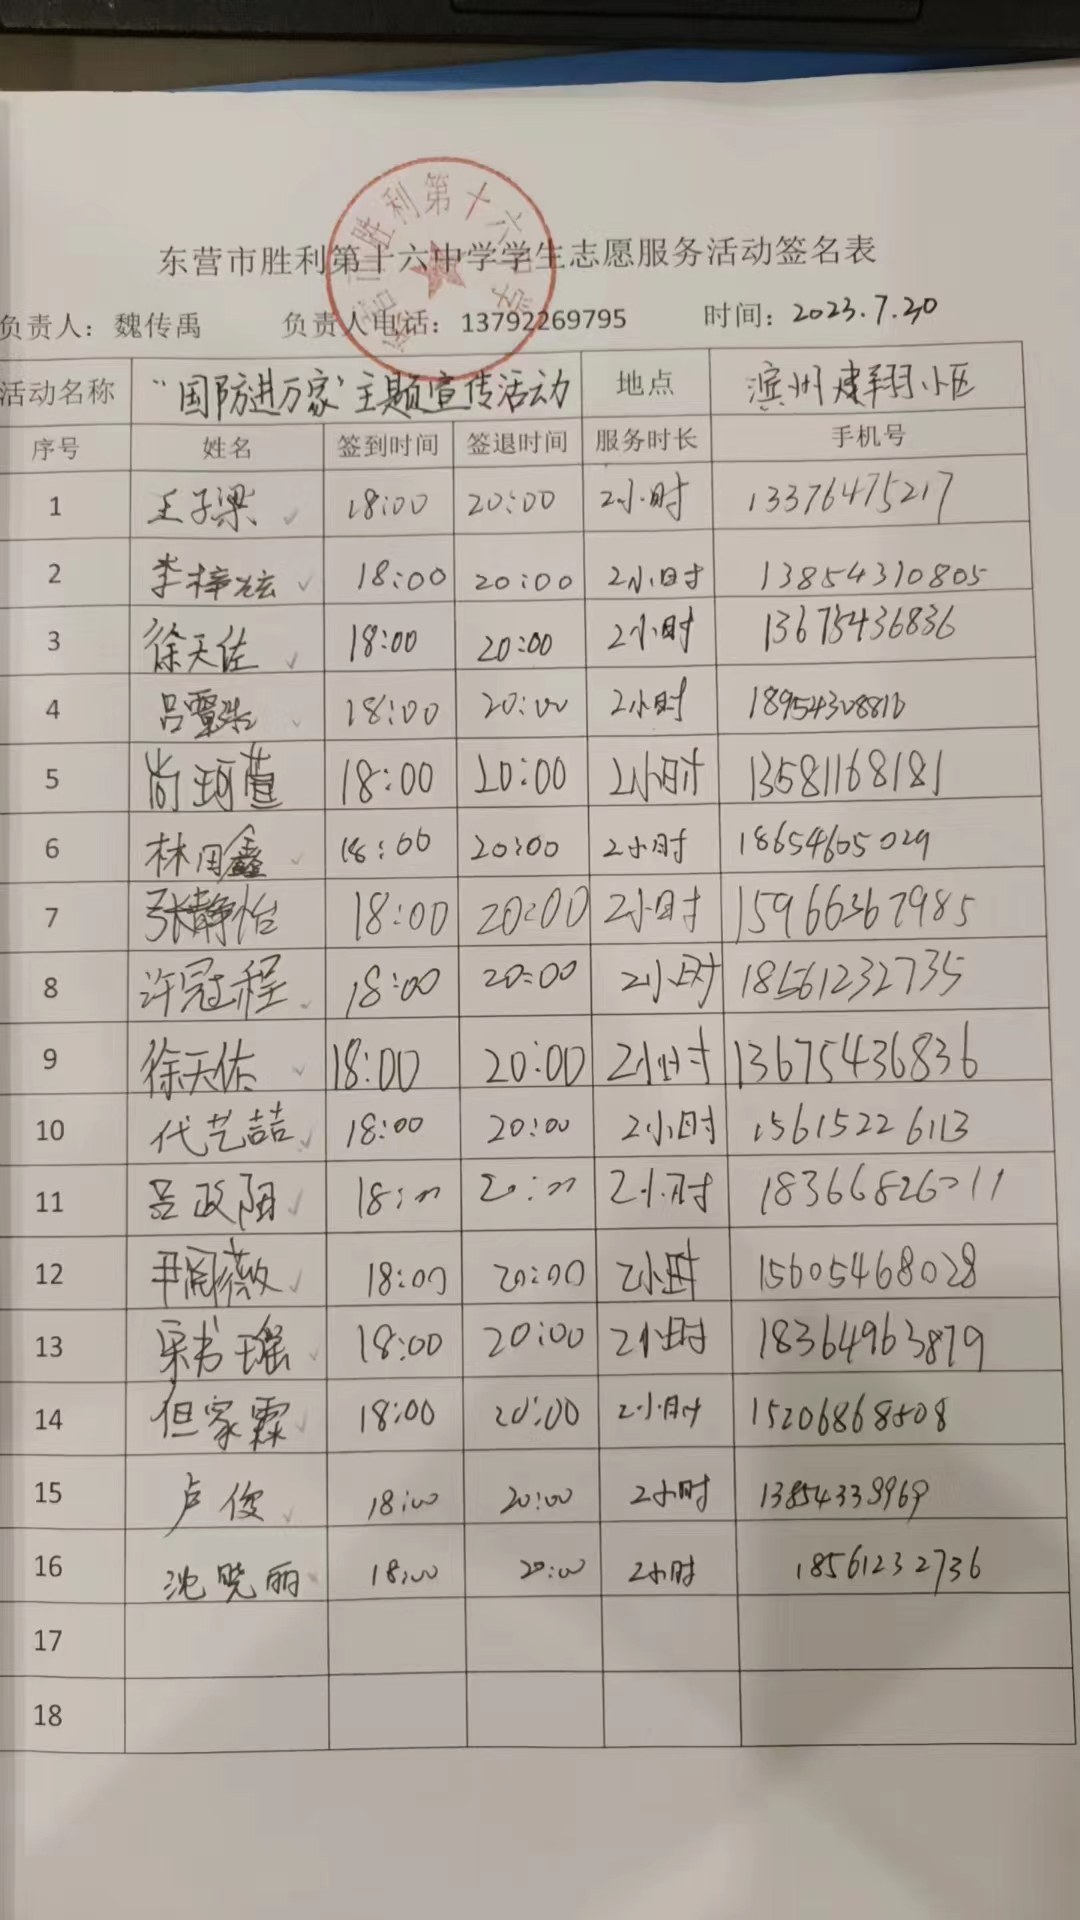 东营市胜利第十六中学学生志愿服务活动签名表
负责人：魏传禹 负责人电话：13792269795 时间：2023.7.20
活动名称 “国防进万家”主题宣传活动 地点 滨州建翔小区
序号 姓名 签到时间 签退时间 服务时长 手机号
1 王子梁 18:00 20:00 2小时 13376475217
2 李梓炫 18:00 20:00 2小时 13854310805
3 徐天佐 18:00 20:00 2小时 13675436836
4 吕 18:00 20:00 2小时
5 尚珂萱 18:00 20:00 2小时 13581168181
6 林囝鑫 18:00 20:00 2小时 18654605029
7 张静怡 18:00 20:00 2小时 15966367985
8 许冠程 18:00 20:00 2小时 18561232735
9 徐天佑 18:00 20:00 2小时 13675436836
10 代艺喆 18:00 20:00 2小时 15615226113
11 吕政阳 18:00 20:00 2小时 18366826011
12 尹阁薇 18:00 20:00 2小时 15605468028
13 宋书瑶 18:00 20:00 2小时 18364963879
14 但家霖 18:00 20:00 2小时 15206868808
15 卢俊 18:00 20:00 2小时 13854339969
16 沈晓丽 18:00 20:00 2小时 18561232736
17
18